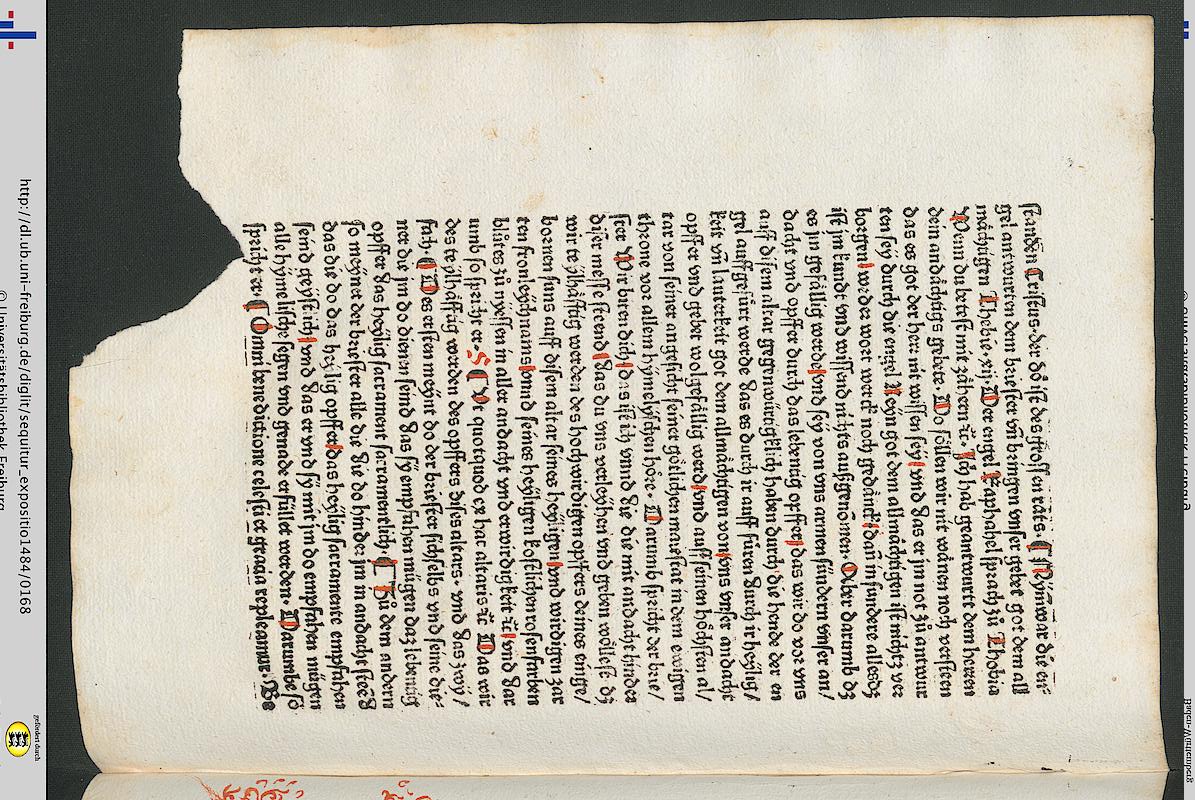 standen Cristus der do ist des grossen rats ¶ Nym war die en
gel antwurten dem briester vn̄ bringen vnser gebet got dem all
mächtigen Thobie·xij· Der engel Raphahel sprach zů Thobia
Wenn du betest mit zåhern ⁊c̄· Ich hab geantwurtt dem herren
dein andåchtigs gebete· Do söllen wir nit wånen noch versteen
das es got der herr nit wissen sey/ vnd das er jm not zů antwur
ten sey durch die engel Neyn got dem allmåchtigen ist nichtz ver
borgen/ weder wort werck noch gedånck/ dan̄ in sundere alles dz
ist jm kundt vnd wissend nichts außgenōmen· Aber darumb dz
es jm gefållig werde/ vnd sey von vns armen sündern vnser an/
dacht vnd opffer durch das lebentig opffer/ das wir do vor vns
auff disem altar gegenwürtigklich haben durch die hende der en
gel auffgefürt werde das es durch ir auff füren durch ir heylig/
keit vn̄ lauterkeit got dem allmåchtigen von vns vnser andacht
opffer vnd gebet wolgefållig werd/ vnd auff seinen höchsten al/
tar von seiner angesicht seiner götlichen maiestat in dem ewigen
throne vor allem hymelyschen höre· Darumb spricht der brie/
ster Wir biten dich/ das ist ich vnnd die die mit andacht hinder
diser messe steend/ das du vns verleyhen vnd geben wöllest dz
wir teylhåfftig werden des hochwirdigen opffers deines einge/
bornen suns auff disem altar seines heyligen/ vnd wirdigen zar
ten fronleychnams/ vnnd seines heyligen kostlichen rosenfarben
blůtes zů nyessen in aller andacht vnd erwirdigkeit ⁊c̄/ vnd dar
umb so spricht er· S ¶ Vt quotquod ex hac altaris ⁊c̄ Das wir
des teylhåfftig worden des opffers dises altars· vnd das zwy/
fach ¶ Des ersten meynt do der briester sich selbs vnd seine die⸗
ner die jm do dienen seind das sy empfahen mügen daz lebentig
opffer das heylig sacrament sacramentlich· ¶ Zů dem andern
so meyner der briester alle die die do hinder jm in andacht steed
das die do das heylig opffer/ das heylig sacramente empfahen
seind geystlich/ vnd das er vnd sy mit jm do empfahen mügen
alle hymelische segen vnd genade erfüllet werden· Darumbe/ so
spricht er· ¶ Omni benedictione celesti et gracia repleamur· We
http://dl.ub.uni-freiburg.de/diglit/sequitur_expositio1484/0168
© Universitätsbibliothek Freiburg
gefördert durch